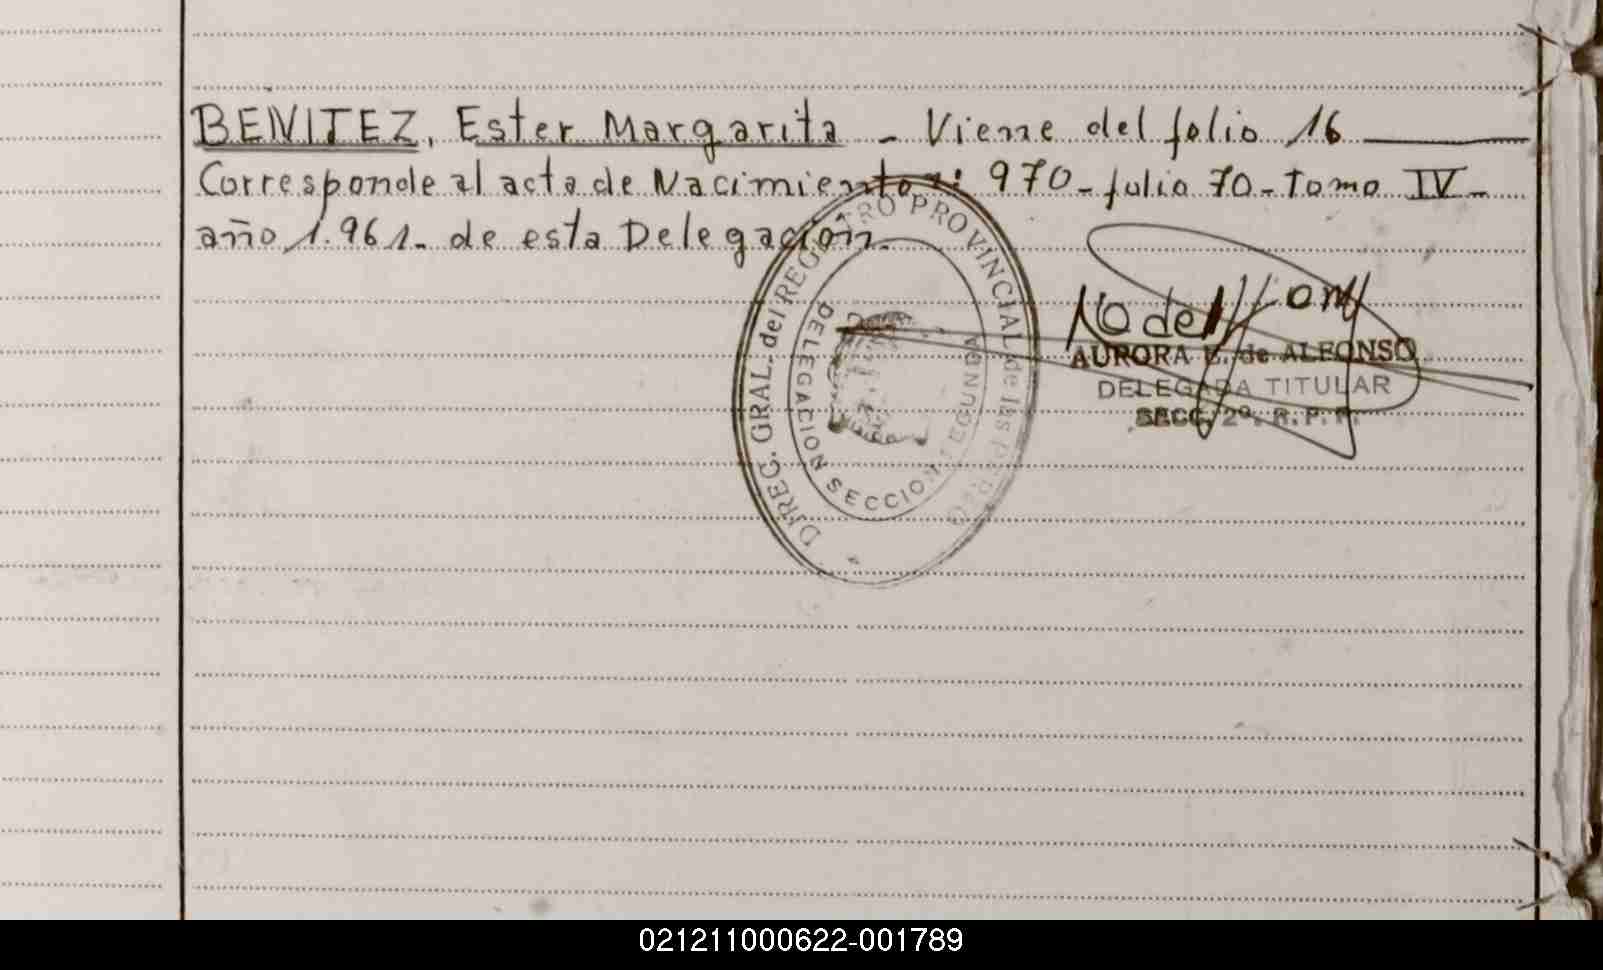 BENITEZ, Ester Margarita - Viene del folio 16
Corresponde al acta de Nacimiento n: 970 - folio 70 - Tomo IV -
año 1.961- de esta Delegación.
DIREG. GRAL. del REGISTRO PROVINCIAL de las
DELEGACION SECCION SEGUNDA
AURORA de ALFONSO
DELEGADA TITULAR
SECC. 2ª. R. P. P.
021211000622-001789